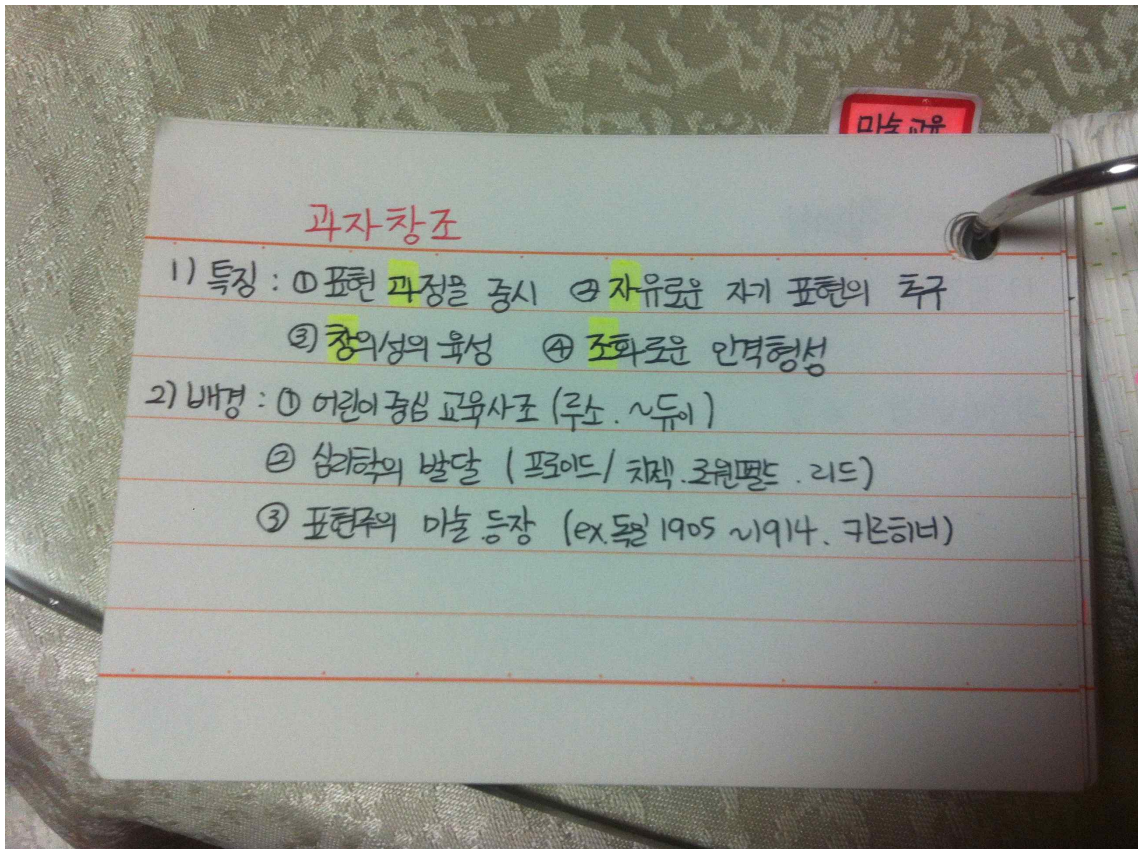 미술교육
과자창조
1) 특징 : ① 표현 과정을 중시 ② 자유로운 자기 표현의 추구
③ 창의성의 육성 ④ 조화로운 인격형성
2) 배경 : ① 어린이 중심 교육사조 (루소. ~듀이)
② 심리학의 발달 (프로이드/ 치젝.로웬펠드. 리드)
③ 표현주의 미술 등장 (ex.독일 1905 ~1914. 키르히너)